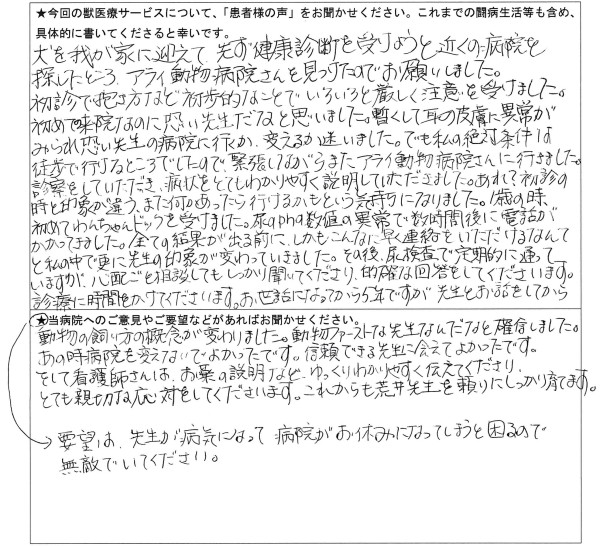 ★今回の獣医療サービスについて、「患者様の声」をお聞かせください。これまでの闘病生活等も含め、
具体的に書いてくださると幸いです。
犬を我が家に迎えて 先ず健康診断を受けようと近くの病院を
探したところ、アライ動物病院さんを見つけたのでお願いしました。
初診で抱き方など初歩的なことでいろいろと厳しく注意を受けました。
初めて来院なのに恐い先生だなと思いました。暫くして耳の皮膚に異常が
みられ恐い先生の病院に行くか、変えるか迷いました。でも私の絶対条件は
徒歩で行けるところでしたので、緊張しながらまたアライ動物病院さんに行きました。
診察をしていただき、病状をとてもわかりやすく説明していただきました。あれ？初診の
時と印象が違う、また何かあったら行けるかもという気持ちになりました。1歳の時、
初めてわんちゃんドックを受けました。尿のphの数値の異常で数時間後に電話が
かかってきました。全ての結果が出る前に、しかもこんなに早く連絡をいただけるなんて
と私の中で更に先生の印象が変わっていきました。その後、尿検査で定期的に通って
いますが、心配ごと相談してもしっかり聞いてくださり、的確な回答をしてくださいます。
診療に時間をかけてくださいます。お世話になってから5年ですが 先生とお話をしてから
★当病院へのご意見やご要望などがあればお聞かせください。
動物の飼い方の概念が変わりました。動物ファーストな先生なんだなと確信しました。
あの時病院を変えないでよかったです。信頼できる先生に会えてよかったです。
そして看護師さんは、お薬の説明など、ゆっくりわかりやすく伝えてくださり、
とても親切な応対をしてくださいます。これからも荒井先生を頼りにしっかり育てます。
→要望は、先生が病気になって 病院がお休みになってしまうと困るので
無敵でいてください。